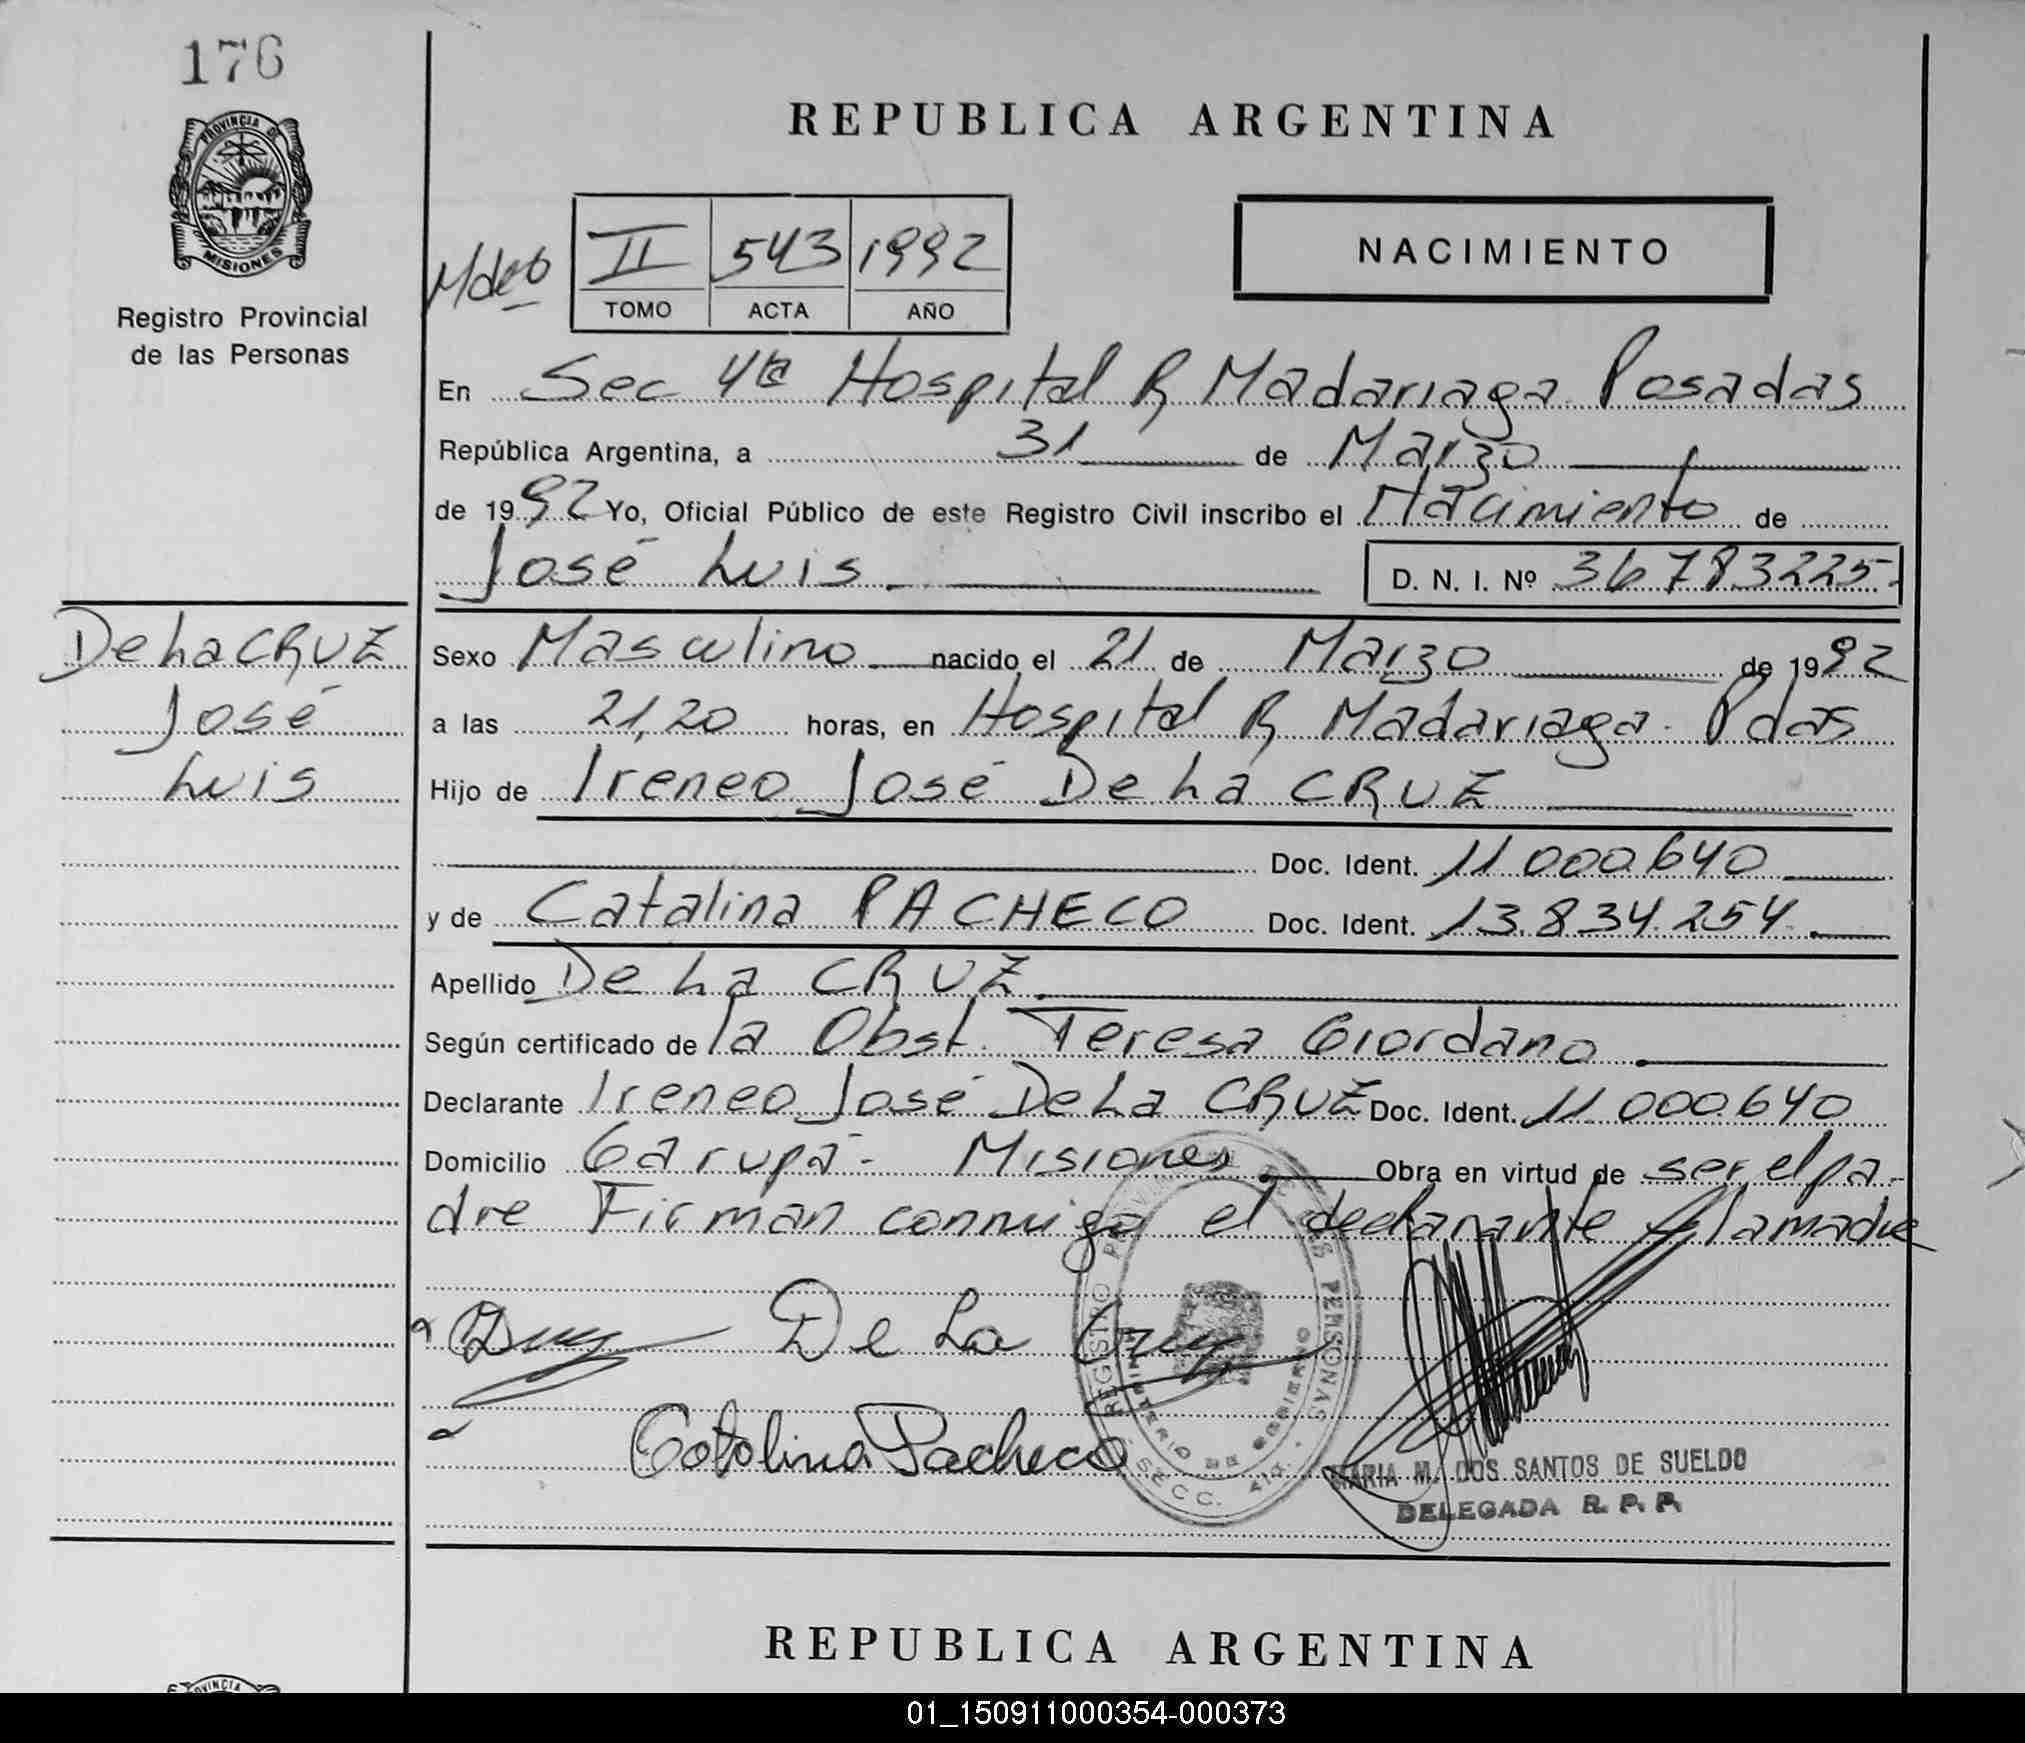 176
PROVINCIA DE
MISIONES
Registro Provincial
de las Personas
REPUBLICA ARGENTINA
II 543 1992
TOMO ACTA AÑO
NACIMIENTO
En Sec 4ta Hospital R Madariaga Posadas
República Argentina, a 31 de Marzo
de 1992 Yo, Oficial Público de este Registro Civil inscribo el Nacimiento de
José Luis. D. N. I. Nº 36783225.-
De La CRUZ
José
Luis
Sexo Masculino nacido el 21 de Marzo de 1992
a las 21,20 horas, en Hospital R Madariaga. Pdas
Hijo de Ireneo José De La CRUZ
Doc. Ident. 11.000.640
y de Catalina PACHECO Doc. Ident. 13.834.254.
Apellido De La CRUZ.
Según certificado de la Obst. Teresa Giordano.
Declarante Ireneo José De La CRUZ Doc. Ident. 11.000.640
Domicilio Garupá - Misiones. Obra en virtud de ser el pa-
dre Firman conmigo el declarante y la madre
De La Cruz
Catalina Pacheco
REGISTRO PROVINCIAL DE LAS PERSONAS
MINISTERIO DE GOBIERNO
SECC. 4ta.
MARIA M. DOS SANTOS DE SUELDO
DELEGADA R. P. P.
REPUBLICA ARGENTINA
PROVINCIA
01_150911000354-000373